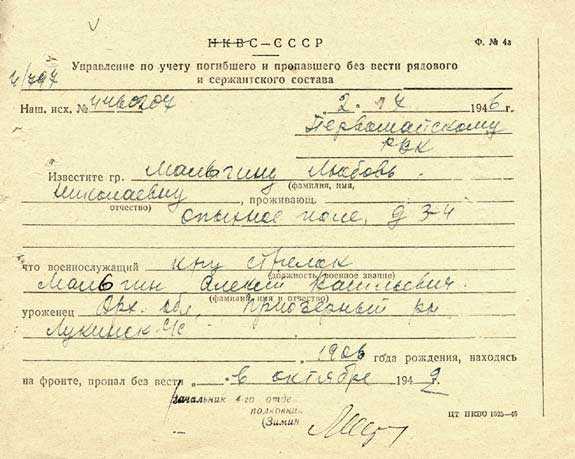 НКВС—СССР
Ф. № 4а
Управление по учету погибшего и пропавшего без вести рядового
и сержантского состава
4/797
Наш. исх. №
2. 1946 г.
Первомайскому
РВК
Известите гр. Мальгину Любовь
Николаевну (фамилия, имя,
отчество) , проживающ.
опытное поле, д 3-4
что военнослужащий стрелок
(должность, военное звание)
Мальгин Алексей Васильевич
(фамилия, имя и отчество)
уроженец Арх. обл., Приозерный рн
Лукинск. с/с
1906 года рождения, находясь
на фронте, пропал без вести в октябре 194
Начальник 4-го отде
полковни
(Зимин
ЦТ НКВС 1625—46